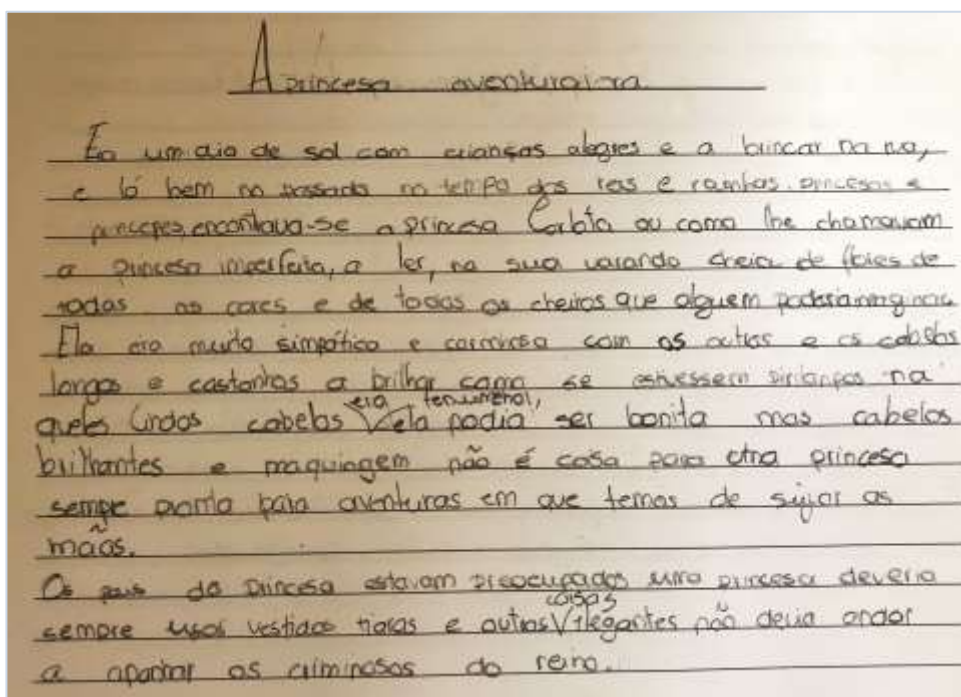 A princesa aventuraira
Era um dia de sol com crianças alegres e a brincar na rua,
e lá bem no passado no tempo dos reis e rainhas, princesas e
princepes, encontrava-se a princesa ou como lhe chamavam
a princesa imperfeita, a ler, na sua varanda cheia de flores de
todas as cores e de todos os cheiros que alguem poderia imaginar.
Ela era muito simpática e carinhosa com os outros e os cabelos
longos e castanhos a brilhar como se estivessem na
queles lindos cabelos era fenumenal, ela podia ser bonita mas cabelos
brilhantes e maquiagem não é coisa para uma princesa
sempre pronta para aventuras em que temos de sujar as
mãos.
Os pais da princesa estavam preocupados uma princesa deveria
sempre usar vestidos tiaras e outras coisas ilegantes não devia andar
a apanhar os criminosos do reino.